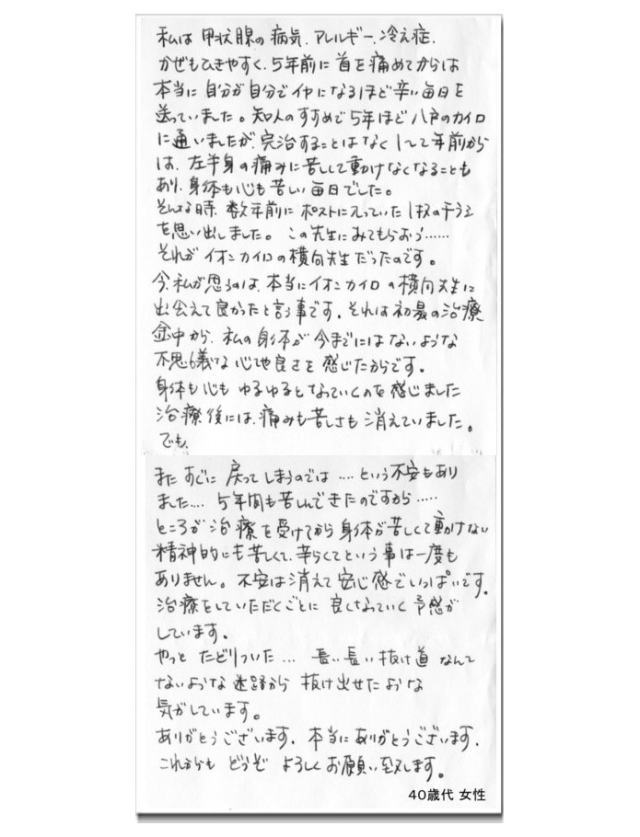 私は甲状腺の病気、アレルギー、冷え症、
かぜもひきやすく、5年前に首を痛めてからは
本当に自分が自分でイヤになるほど辛い毎日を
送っていました。知人のすすめで5年ほど八戸のカイロ
に通いましたが、完治することはなく1〜2年前から
は、左半身の痛みに苦しくて動けなくなることも
あり、身体も心も苦しい毎日でした。
そんな時、数年前にポストに入っていた1枚のチラシ
を思い出しました。この先生にみてもらおう……
それがイオンカイロの横向先生だったのです。
今、私が思うのは、本当にイオンカイロの横向先生に
出会えて良かったと言う事です。それは初最の治療
途中から、私の身体が今までにはないような
不思議な心地良さを感じたからです。
身体も心もゆるゆるとなっていくのを感じました
治療後には、痛みも苦しさも消えていました。
でも、
またすぐに戻ってしまうのでは‥‥という不安もあり
ました‥‥5年間も苦しんできたのですから‥‥‥
ところが治療を受けてから身体が苦しくて動けない
精神的にも苦しくて、辛らくてという事は一度も
ありません。不安は消えて安心感でいっぱいです。
治療をしていただくごとに良くなっていく予感が
しています。
やっとたどりついた…長い長い抜け道なんて
ないような迷路から抜け出せたような
気がしています。
ありがとうございます、本当にありがとうございます、
これからもどうぞよろしくお願い致します。
40歳代 女性